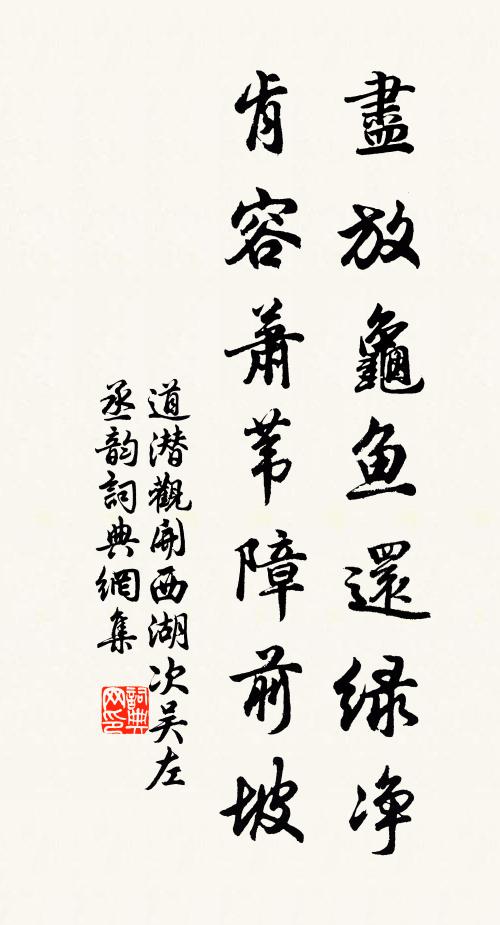 盡放龜魚還緑净
肯容蕭苇障前坡
道潜觀開西湖次吴左
丞韵詞典網集
詞典网印